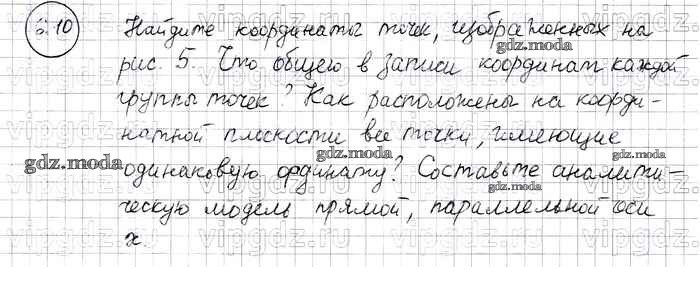 6.10 Найдите координаты точек, изображенных на
рис. 5. Что общего в записи координат каждой
группы точек? Как расположены на коорди-
натной плоскости все точки, имеющие
одинаковую ординату? Составьте аналити-
ческую модель прямой, параллельной оси
x.
gdz.moda
gdz.moda
gdz.moda
gdz.moda
gdz.moda
gdz.moda
vipgdz.ru